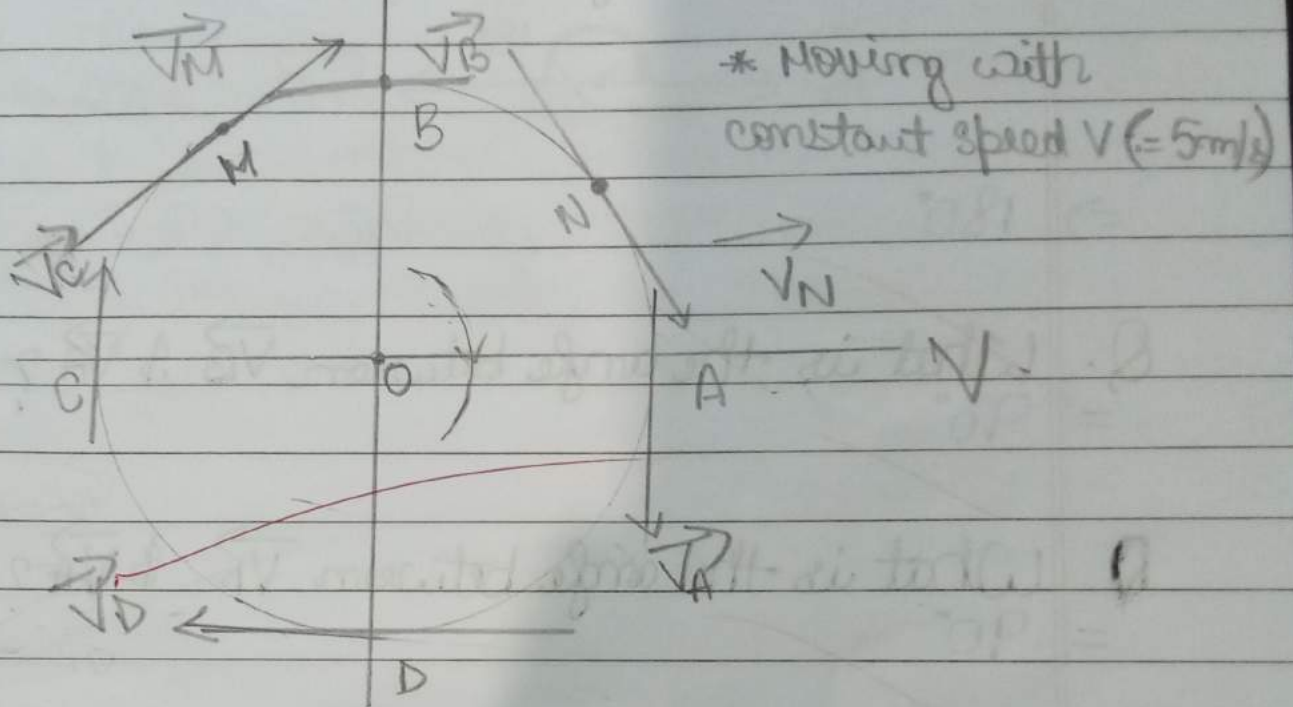 VM
VB
* Moving with
B
constant speed V (= 5m/s)
M
N
VC
VN
C
O
A
V
VA
VD
D